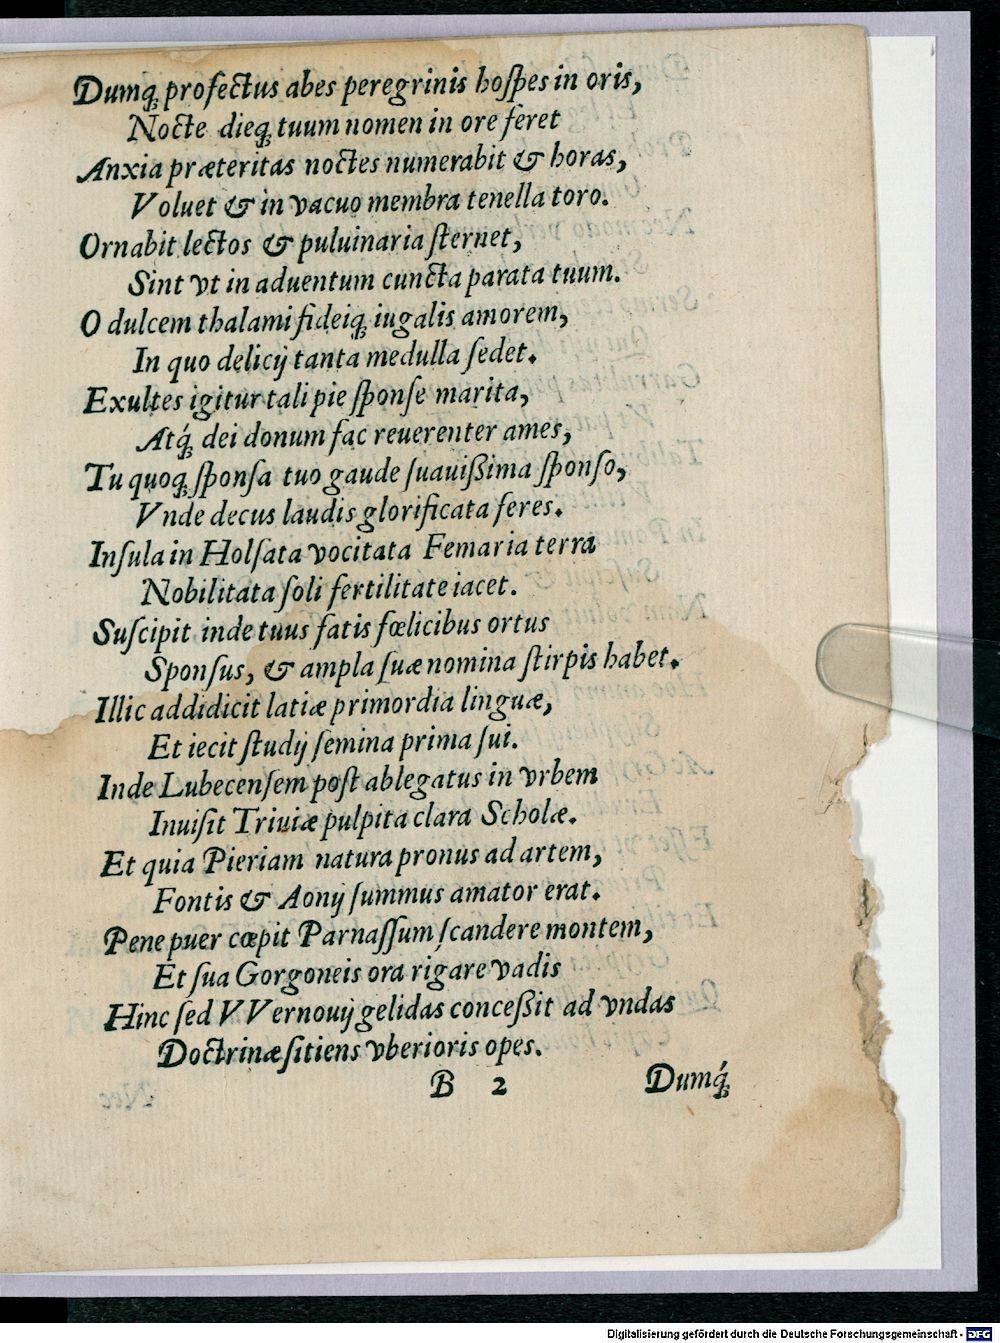 Dumq́; profectus abes peregrinis hoſpes in oris,
Nocte dieq́; tuum nomen in ore feret
Anxia præteritas noctes numerabit & horas,
Voluet & in vacuo membra tenella toro.
Ornabit lectos & puluinaria ſternet,
Sint vt in aduentum cuncta parata tuum.
O dulcem thalami fideiq́; iugalis amorem,
In quo delicij tanta medulla ſedet.
Exultes igitur tali pie ſponſe marita,
Atq́; dei donum fac reuerenter ames,
Tu quoq; ſponſa tuo gaude ſuauißima ſponſo,
Vnde decus laudis glorificata feres.
Inſula in Holſata vocitata Femaria terra
Nobilitata ſoli fertilitate iacet.
Suſcipit inde tuus fatis fœlicibus ortus
Sponſus, & ampla ſuæ nomina ſtirpis habet.
Illic addidicit latiæ primordia linguæ,
Et iecit ſtudij ſemina prima ſui.
Inde Lubecenſem poſt ablegatus in vrbem
Inuiſit Triuiæ pulpita clara Scholæ.
Et quia Pieriam natura pronus ad artem,
Fontis & Aonij ſummus amator erat.
Pene puer cœpit Parnaſſum ſcandere montem,
Et ſua Gorgoneis ora rigare vadis
Hinc ſed VVernouij gelidas conceßit ad vndas
Doctrinæ ſitiens vberioris opes.
B 2 Dumq́;
Digitalisierung gefördert durch die Deutsche Forschungsgemeinschaft - DFG